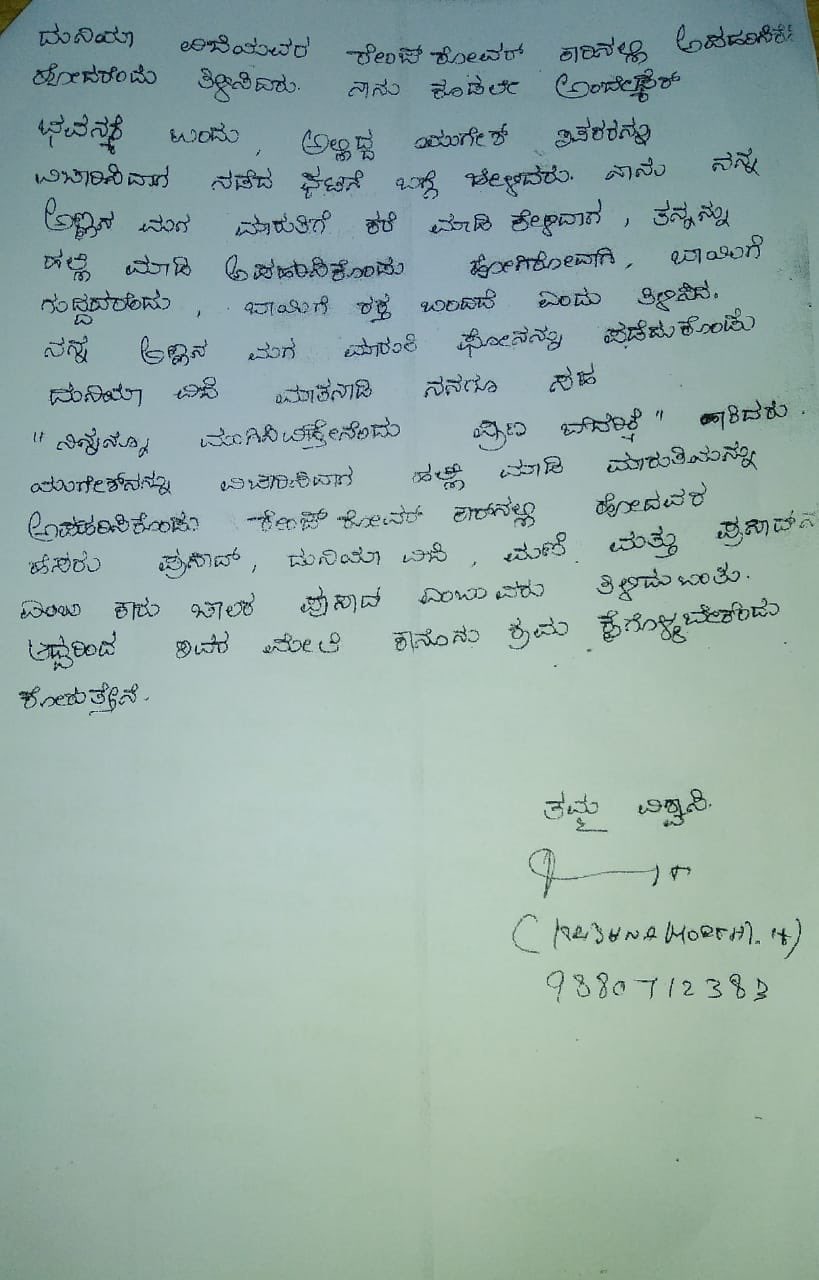 ದುನಿಯಾ ವಿಜಿಯವರ ರೇಂಜ್ ರೋವರ್ ಕಾರಿನಲ್ಲಿ ಅಪಹರಿಸಿಕೊ
ಹೋದರೆಂದು ತಿಳಿಸಿದರು. ನಾನು ಕೂಡಲೇ ಅಂಬೇಡ್ಕರ್
ಭವನಕ್ಕೆ ಬಂದು, ಅಲ್ಲಿದ್ದ ಯುಗೇಶ್ ಇತರರನ್ನು
ವಿಚಾರಿಸಿದಾಗ ನಡೆದ ಘಟನೆ ಬಗ್ಗೆ ಹೇಳಿದರು. ನಾನು ನನ್ನ
ಅಣ್ಣನ ಮಗ ಮಾರುತಿಗೆ ಕರೆ ಮಾಡಿ ಕೇಳಿದಾಗ, ತನ್ನನ್ನು
ಹಲ್ಲೆ ಮಾಡಿ ಅಪಹರಿಸಿಕೊಂಡು ಹೋಗಿರೋದಾಗಿ, ಬಾಯಿಗೆ
ಗುದ್ದಿದರೆಂದು, ಬಾಯಿಗೆ ರಕ್ತ ಬಂದಿದೆ ಎಂದು ತಿಳಿಸಿದ.
ನನ್ನ ಅಣ್ಣನ ಮಗ ಮಾರುತಿ ಫೋನನ್ನು ಪಡೆದುಕೊಂಡು
ದುನಿಯಾ ವಿಜಿ ಮಾತನಾಡಿ ನನಗೂ ಸಹ
"ನಿನ್ನನ್ನೂ ಮುಗಿಸಿಬಿಡ್ತೀನೆಂದು ಪ್ರಾಣ ಬೆದರಿಕೆ" ಹಾಕಿದರು.
ಯುಗೇಶ್‌ನನ್ನು ವಿಚಾರಿಸಿದಾಗ ಹಲ್ಲೆ ಮಾಡಿ ಮಾರುತಿಯನ್ನು
ಅಪಹರಿಸಿಕೊಂಡು ರೇಂಜ್ ರೋವರ್ ಕಾರ್‌ನಲ್ಲಿ ಹೋದವರ
ಹೆಸರು ಪ್ರಸಾದ್, ದುನಿಯಾ ವಿಜಿ, ಮಣಿ ಮತ್ತು ಪ್ರಸಾದ್‌ನ
ಎಂಬ ಕಾರು ಚಾಲಕ ಪ್ರಸಾದ ಎಂಬುವರು ತಿಳಿದು ಬಂತು.
ಆದ್ದರಿಂದ ಇವರ ಮೇಲೆ ಕಾನೂನು ಕ್ರಮ ಕೈಗೊಳ್ಳಬೇಕೆಂದು
ಕೋರುತ್ತೇನೆ.
ತಮ್ಮ ವಿಶ್ವಾಸಿ.
9880712383